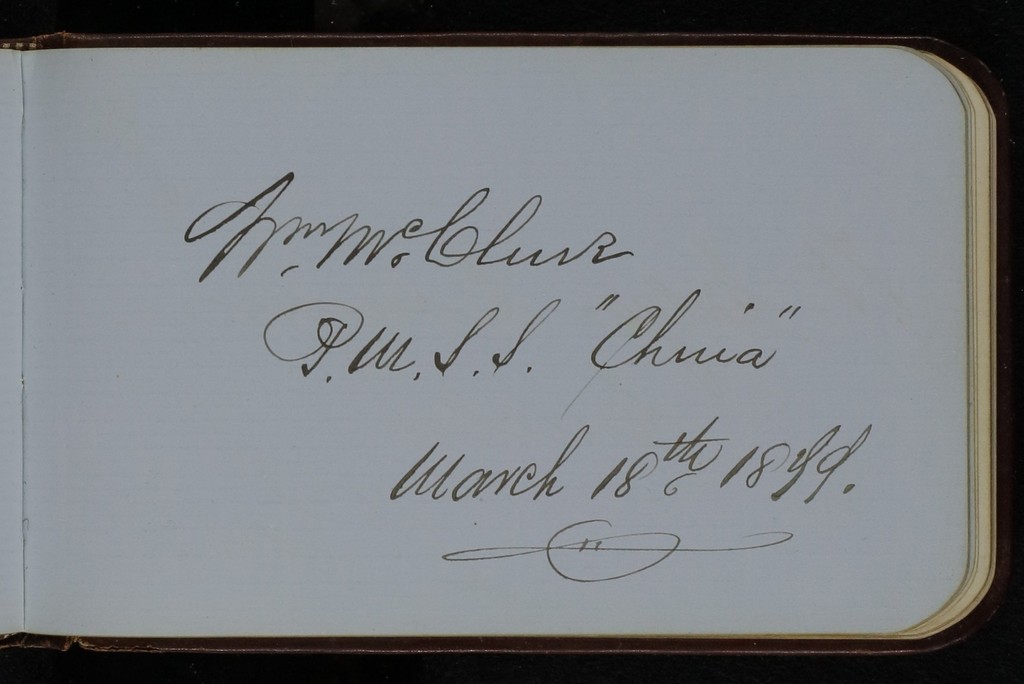 Wm. McClure
P. M. S. S. "China"
March 18th 1899.